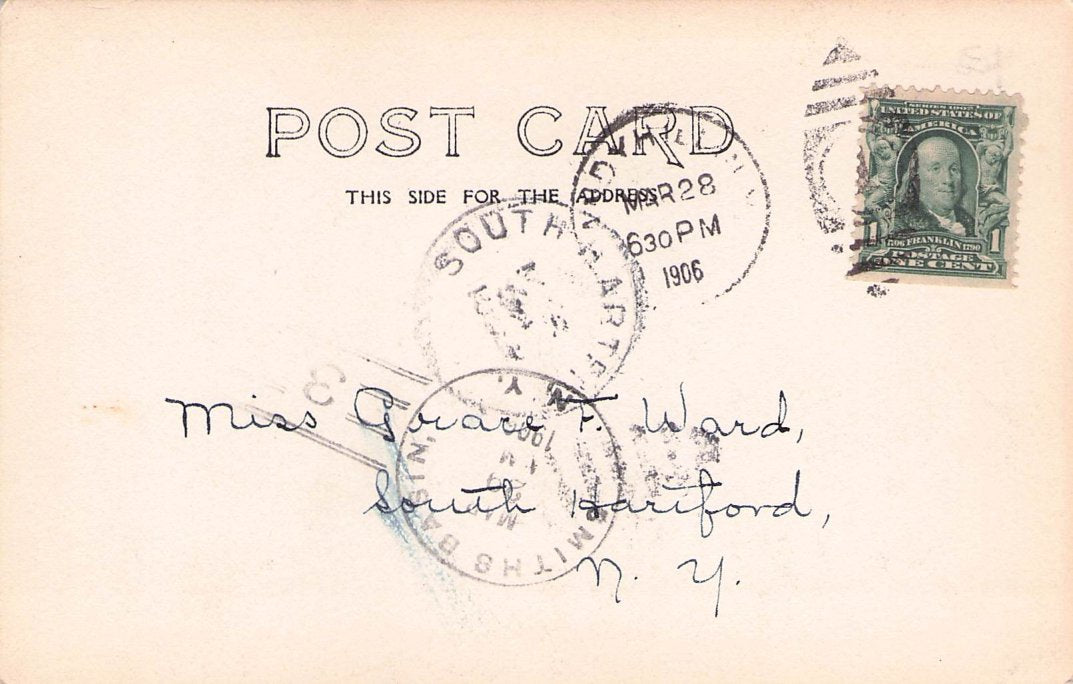 POST CARD
THIS SIDE FOR THE ADDRESS
MAR 28
630 PM
1906
SERIES 1902
UNITED STATES OF
AMERICA
1 1706 FRANKLIN 1790 1
POSTAGE
ONE CENT
SOUTH HARTF
N. Y.
3
SMITHS BASIN,
N. Y.
Miss Grace F. Ward,
South Hartford,
N. Y.